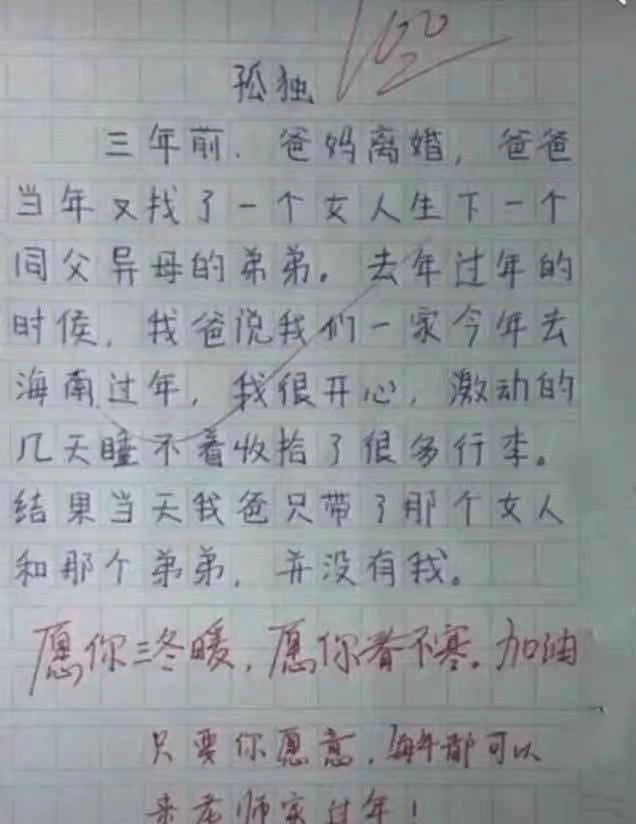 100
孤独
三年前，爸妈离婚，爸爸
当年又找了一个女人生下一个
同父异母的弟弟。去年过年的
时侯，我爸说我们一家今年去
海南过年，我很开心，激动的
几天睡不着收拾了很多行李。
结果当天我爸只带了那个女人
和那个弟弟，并没有我。
愿你三冬暖，愿你春不寒。加油
只要你愿意，每年都可以
来老师家过年！